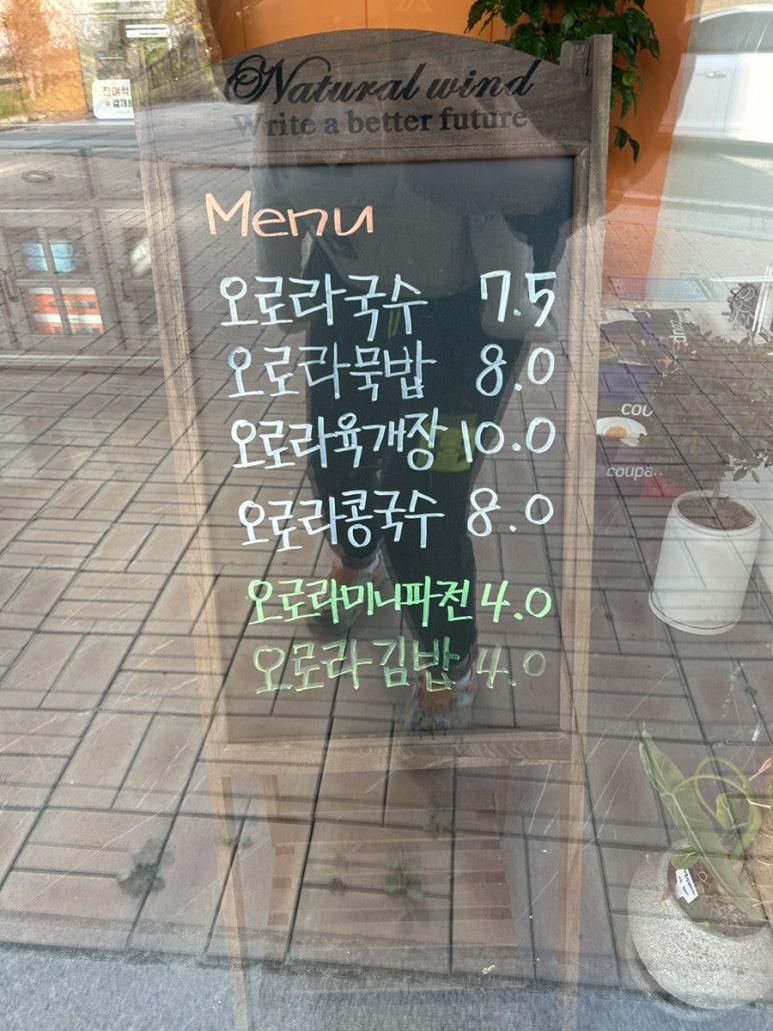 Natural wind
Write a better future
Menu
오로라국수 7.5
오로라묵밥 8.0
오로라육개장 10.0
오로라콩국수 8.0
오로라미니파전 4.0
오로라김밥 4.0
coupa